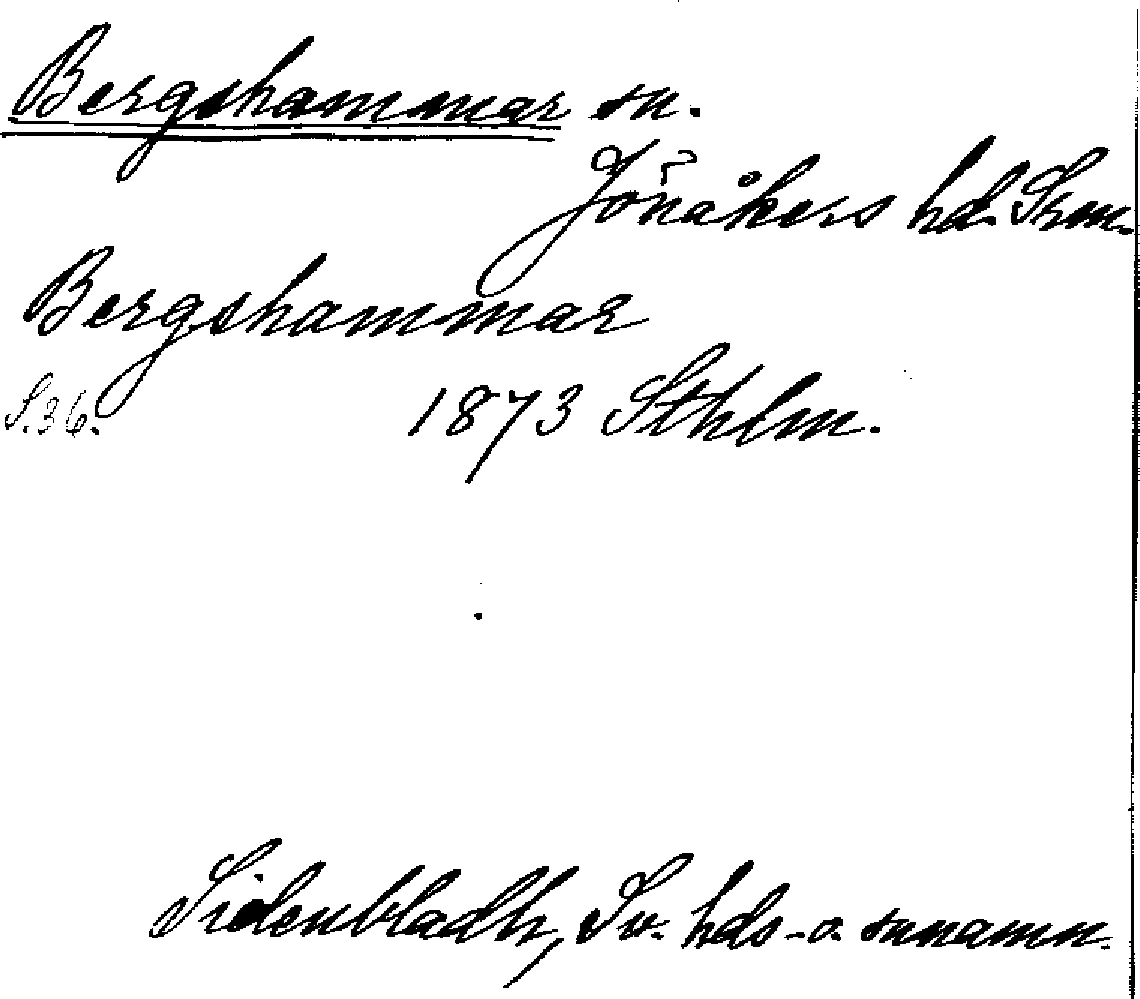 Bergshammar sn.
Jönåkers hd. Srm.
Bergshammar
S. 36.
1873 Sthlm.
Sidenbladh, Sv. hds- o. snnamn.